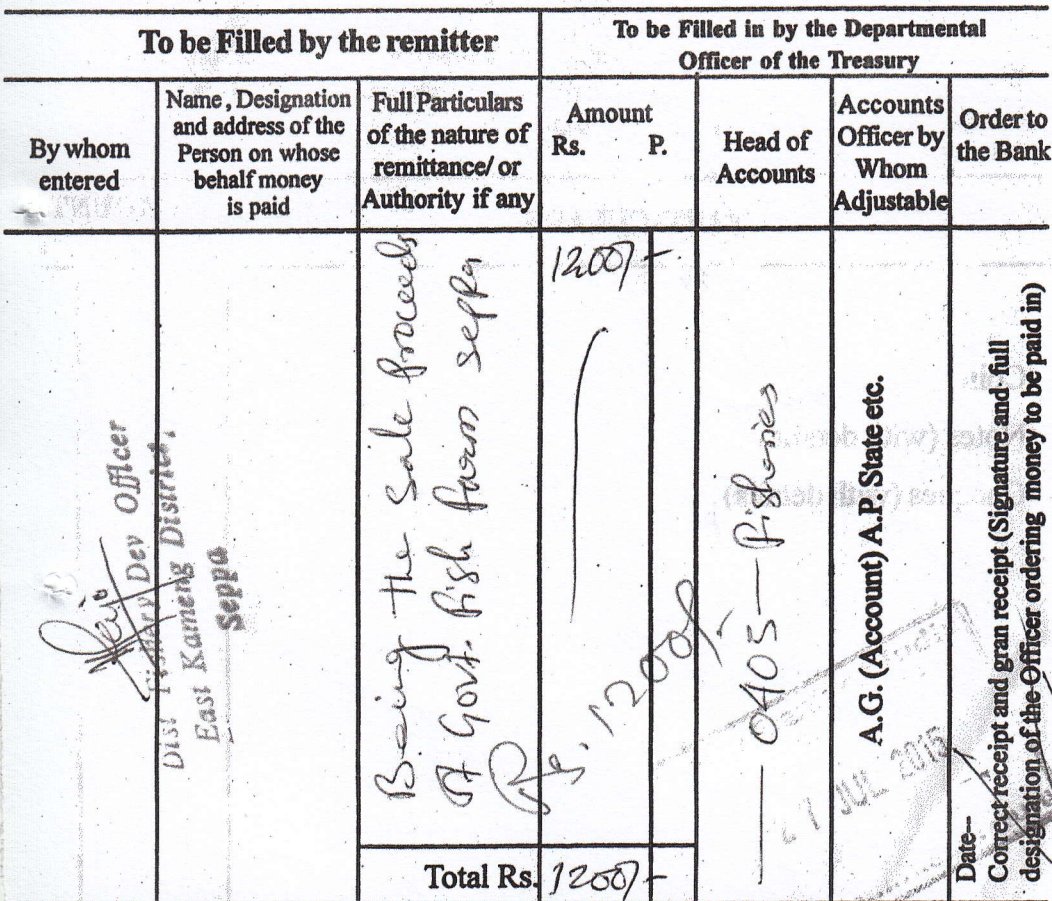 To be Filled by the remitter
To be Filled in by the Departmental
Officer of the Treasury
By whom
entered
Name, Designation
and address of the
Person on whose
behalf money
is paid
Full Particulars
of the nature of
remittance/ or
Authority if any
Amount
Rs. P.
Head of
Accounts
Accounts
Officer by
Whom
Adjustable
Order to
the Bank
Dist Fishery Dev Officer
East Kameng District,
Seppa
Being the Sale proceeds
of Govt. fish farm seppa
Rs. 1200/-
1200/-
0405 - fisheries
A.G. (Account) A.P. State etc.
Date--
Correct receipt and gran receipt (Signature and full
designation of the Officer ordering money to be paid in)
JUL 2015
Total Rs. 1200/-